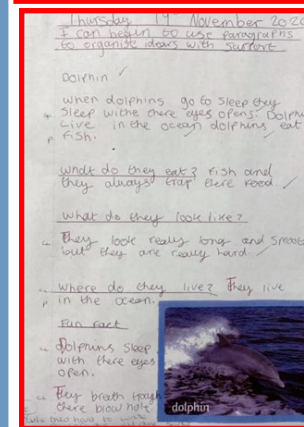 Thursday 19th November 2020
I can begin to use paragraphs
to organise ideas with support
Dolphin
when dolphins go to sleep they
sleep withe there eyes opens. Dolphins
Live in the ocean dolphins eat
fish.
what do they eat? Fish and
they always trap there food.
What do they look like?
They look really long and smooth
but they are really hard
where do they live? They live
in the ocean.
Fun fact
Dolphins sleep
with there eyes
open.
They breath
there blow hole
dolphin